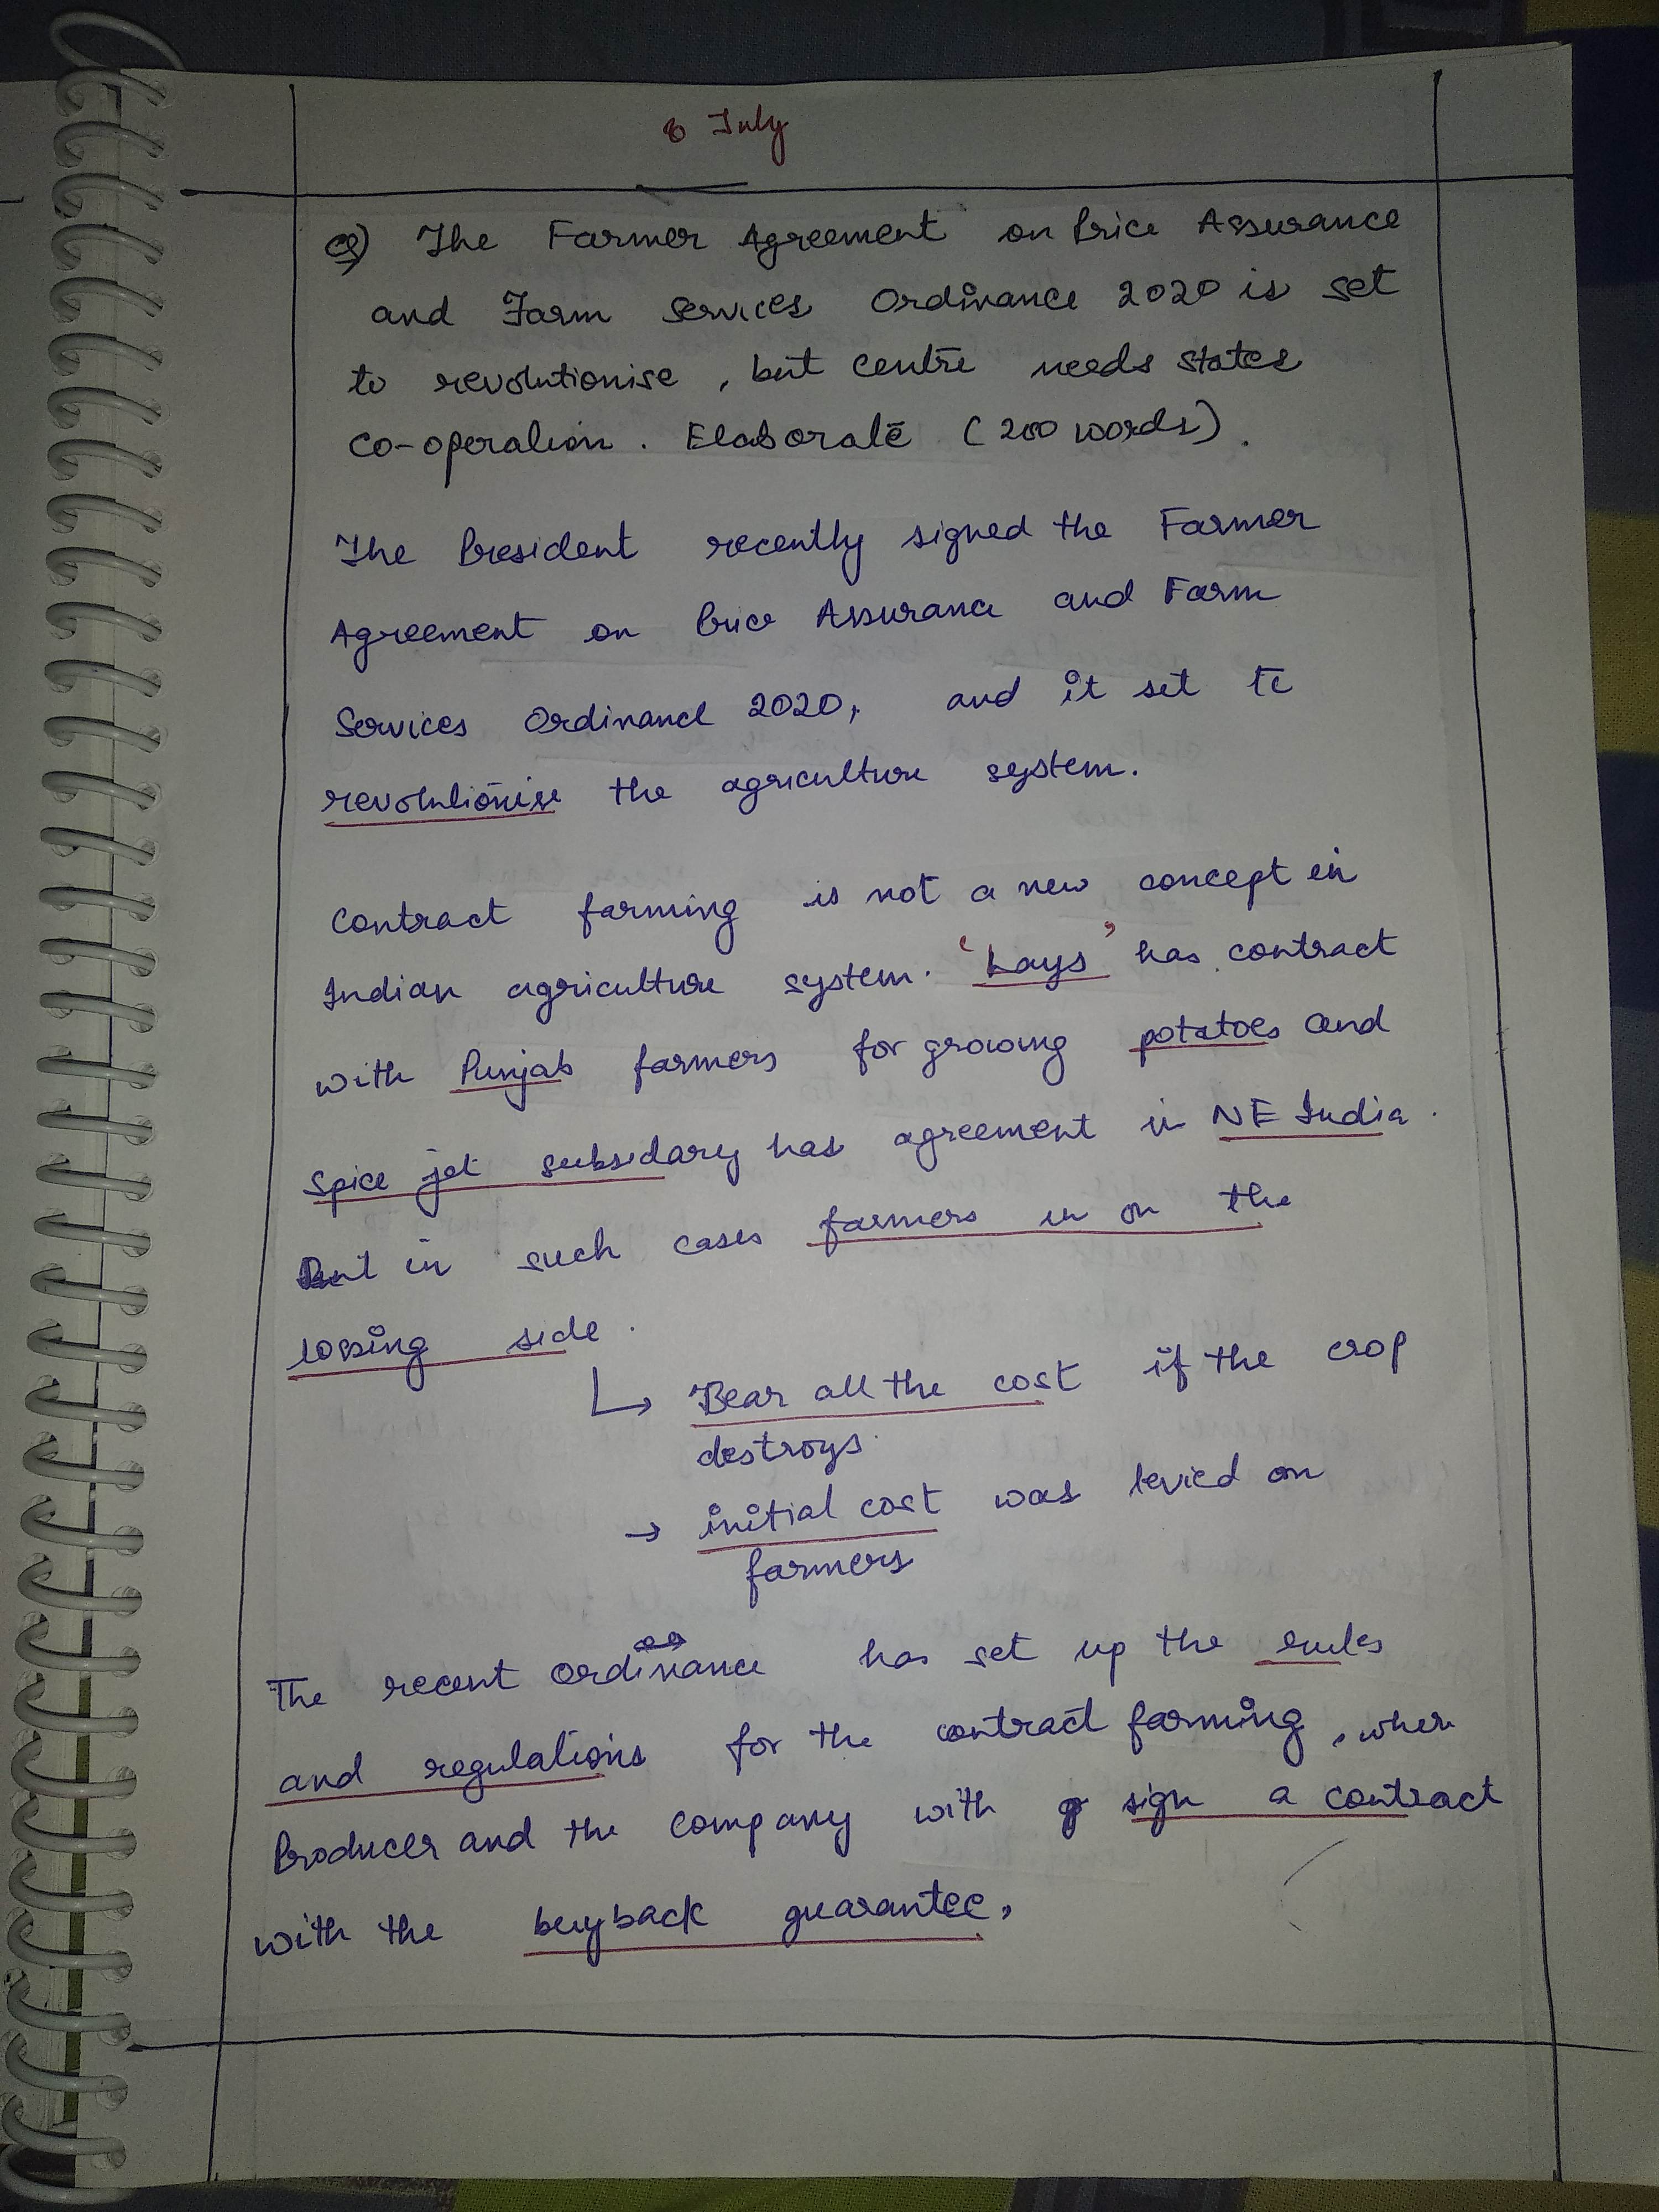 8 July
Q) The Farmer Agreement on Price Assurance
and Farm Services Ordinance 2020 is set
to revolutionise, but centre needs states
co-operation. Elaborate (200 words).
The President recently signed the Farmer
Agreement on Price Assurance and Farm
Services Ordinance 2020, and it set to
revolutionise the agriculture system.
Contract farming is not a new concept in
Indian agriculture system. 'Lays' has contract
with Punjab farmers for growing potatoes and
Spice jet subsidary has agreement in NE India.
But in such cases farmers in on the
lossing side.
↳ Bear all the cost if the crop
destroys.
→ initial cost was levied on
farmers
The recent ordinance has set up the rules
and regulations for the contract farming, when
Producer and the company with sign a contract
with the buyback guarantee,